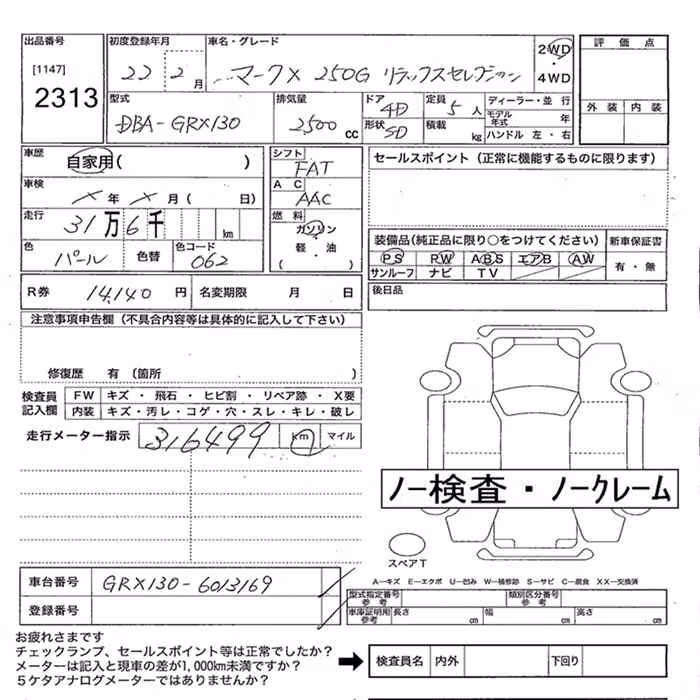 出品番号 初度登録年月 車名・グレード 評価点
[1147] 22 2月 マークX 250G リラックスセレクション 2WD・4WD
2313
型式 排気量 ドア 4D 定員 5人 ディーラー・並行 外装 内装
DBA-GRX130 2500cc 形状 SD 積載 kg モデル年式 年
ハンドル 左・右
車歴 自家用( ) シフト FAT セールスポイント(正常に機能するものに限ります)
車検 X年X月( 日) AC AAC
走行 31万6千 km 燃料 ガソリン 軽・油 ( )
色 パール 色替 色コード 062
装備品(純正品に限り○をつけてください) 新車保証書
PS PW ABS エアB AW 有・無
サンルーフ ナビ TV
R券 14,140円 名変期限 月 日 後日品
注意事項申告欄(不具合内容等は具体的に記入して下さい)
修復歴 有(箇所 )
検査員記入欄 FW キズ・飛石・ヒビ割・リペア跡・X要
内装 キズ・汚レ・コゲ・穴・スレ・キレ・破レ
走行メーター指示 316499 km マイル
ノー検査・ノークレーム
スペアT
A―キズ E―エクボ U―凹み W―補修跡 S―サビ C―腐食 XX―交換済
車台番号 GRX130-6013169
型式指定番号 参考 類別区分番号 参考
登録番号 車庫証明用 参考 長さ cm 幅 cm 高さ cm
お疲れさまです
チェックランプ、セールスポイント等は正常でしたか?
メーターは記入と現車の差が1,000km未満ですか?
5ケタアナログメーターではありませんか?
検査員名 内外 下回り